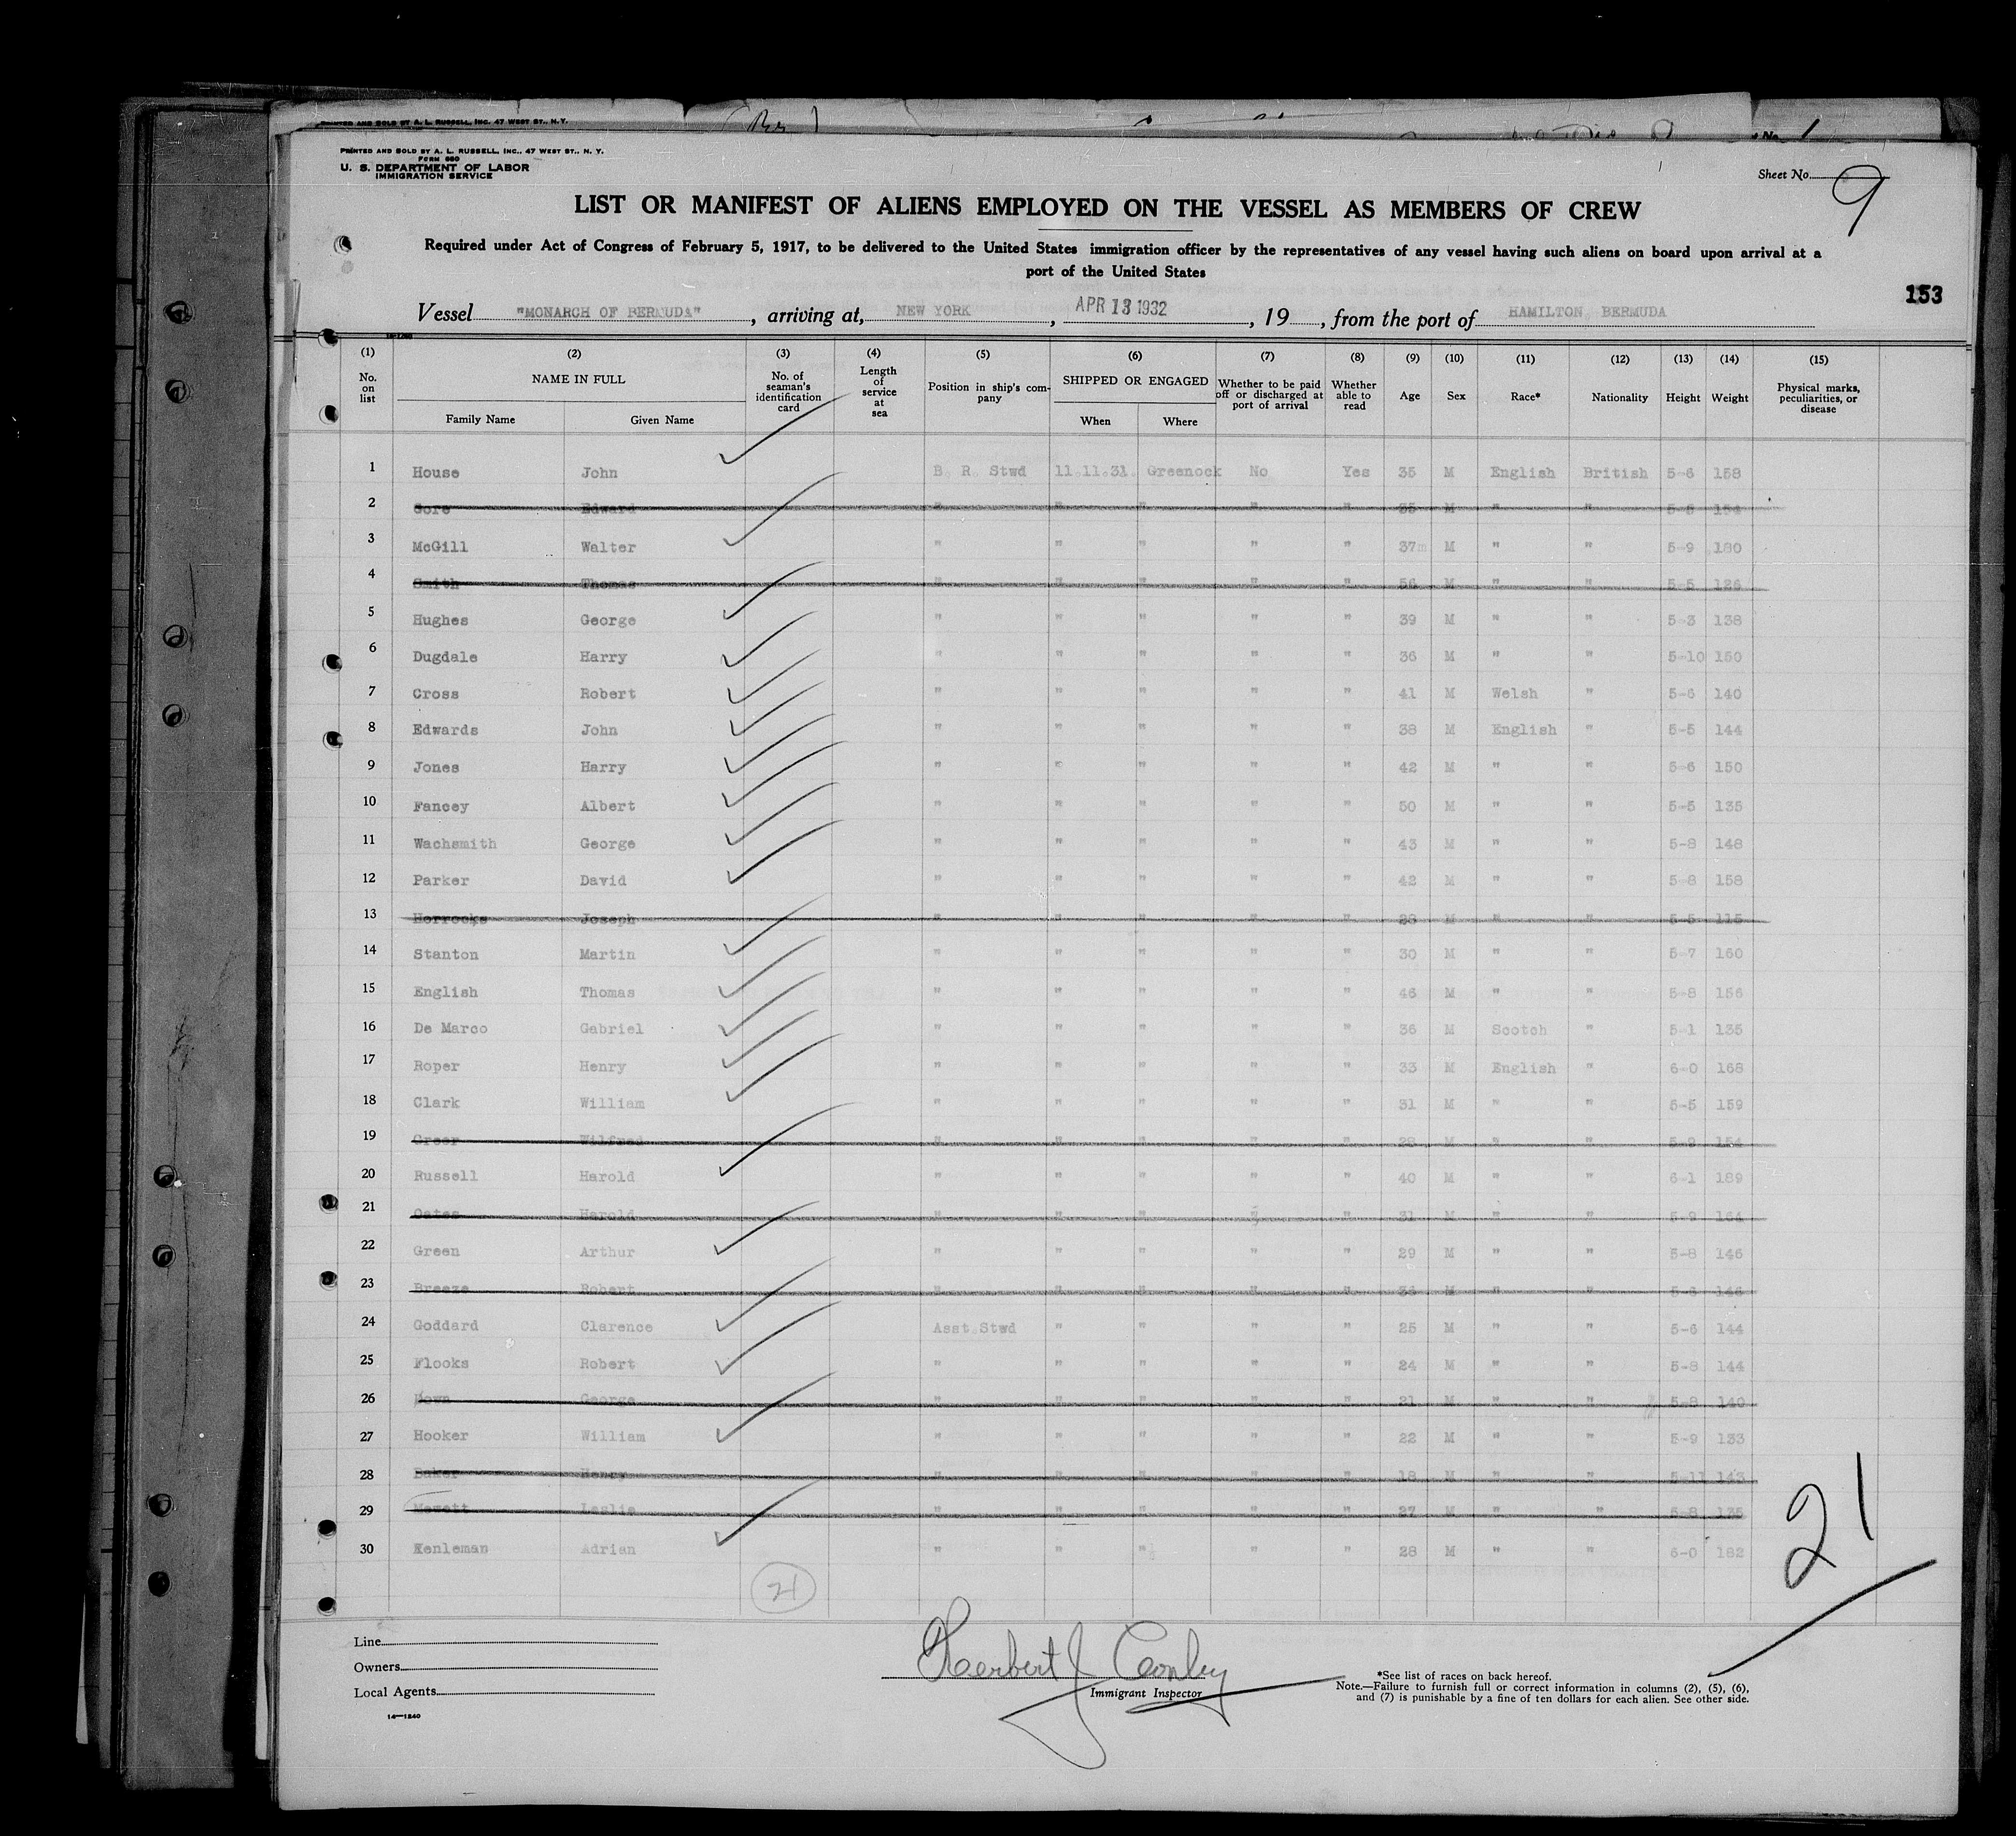 PRINTED AND SOLD BY A. L. RUSSELL, INC. 47 WEST ST., N. Y.
No. 1
PRINTED AND SOLD BY A. L. RUSSELL, INC., 47 WEST ST., N. Y.
FORM 680
U. S. DEPARTMENT OF LABOR
IMMIGRATION SERVICE
Sheet No. 9
LIST OR MANIFEST OF ALIENS EMPLOYED ON THE VESSEL AS MEMBERS OF CREW
Required under Act of Congress of February 5, 1917, to be delivered to the United States immigration officer by the representatives of any vessel having such aliens on board upon arrival at a
port of the United States
153
Vessel "MONARCH OF BERMUDA", arriving at, NEW YORK, APR 13 1932, 19, from the port of HAMILTON, BERMUDA
(1) (2) (3) (4) (5) (6) (7) (8) (9) (10) (11) (12) (13) (14) (15)
No. on list NAME IN FULL Family Name Given Name No. of seaman's identification card Length of service at sea Position in ship's company SHIPPED OR ENGAGED When Where Whether to be paid off or discharged at port of arrival Whether able to read Age Sex Race* Nationality Height Weight Physical marks, peculiarities, or disease
1 House John B. R. Stwd 11.11.31. Greenock No Yes 35 M English British 5-6 158
2 Gore Edward " " " " " 35 M " " 5-6 154
3 McGill Walter " " " " " 37m M " " 5-9 180
4 Smith Thomas " " " " " 56 M " " 5-5 126
5 Hughes George " " " " " 39 M " " 5-3 138
6 Dugdale Harry " " " " " 36 M " " 5-10 150
7 Cross Robert " " " " " 41 M Welsh " 5-6 140
8 Edwards John " " " " " 38 M English " 5-5 144
9 Jones Harry " " " " " 42 M " " 5-6 150
10 Fancey Albert " " " " " 50 M " " 5-5 135
11 Wachsmith George " " " " " 43 M " " 5-8 148
12 Parker David " " " " " 42 M " " 5-8 158
13 Horrocks Joseph " " " " " 28 M " " 5-5 115
14 Stanton Martin " " " " " 30 M " " 5-7 160
15 English Thomas " " " " " 46 M " " 5-8 156
16 De Marco Gabriel " " " " " 36 M Scotch " 5-1 135
17 Roper Henry " " " " " 33 M English " 6-0 168
18 Clark William " " " " " 31 M " " 5-5 159
19 Greer Wilfred " " " " " 28 M " " 5-9 154
20 Russell Harold " " " " " 40 M " " 6-1 189
21 Oates Harold " " " " " 31 M " " 5-9 164
22 Green Arthur " " " " " 29 M " " 5-8 146
23 Breeze Robert " " " " " 36 M " " 5-6 146
24 Goddard Clarence Asst.Stwd " " " " 25 M " " 5-6 144
25 Flooks Robert " " " " " 24 M " " 5-8 144
26 Down George " " " " " 21 M " " 5-8 140
27 Hooker William " " " " " 22 M " " 5-9 133
28 Baker Henry " " " " " 18 M " " 5-11 143
29 Leslie " " " " " 27 M " " 5-8 135
30 Kenleman Adrian " " " " " 28 M " " 6-0 182
21
21
Line
Owners
Local Agents
14—1240
Herbert J Conley
Immigrant Inspector
*See list of races on back hereof.
Note.—Failure to furnish full or correct information in columns (2), (5), (6),
and (7) is punishable by a fine of ten dollars for each alien. See other side.